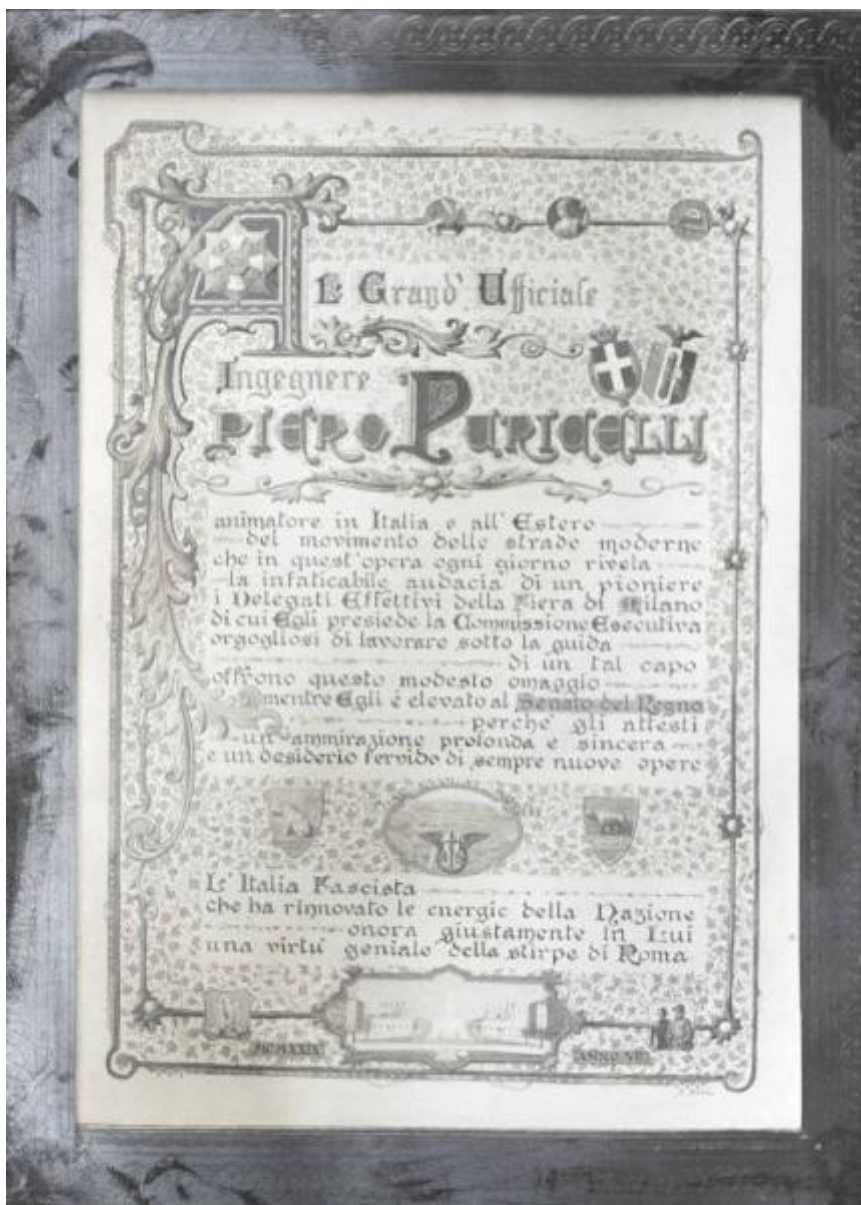 Al Grand' Ufficiale
Ingegnere
PIERO PURICELLI
animatore in Italia e all' Estero
del movimento delle strade moderne
che in quest'opera ogni giorno rivela
la infaticabile audacia di un pioniere
i Delegati Effettivi della Fiera di Milano
di cui Egli presiede la Commissione Esecutiva
orgogliosi di lavorare sotto la guida
di un tal capo
offrono questo modesto omaggio
mentre Egli è elevato al Senato del Regno
perchè gli attesti
un'ammirazione profonda e sincera
e un desiderio fervido di sempre nuove opere
L' Italia Fascista
che ha rinnovato le energie della Nazione
onora giustamente in Lui
una virtù geniale della stirpe di Roma
MCMXXIX
ANNO VII